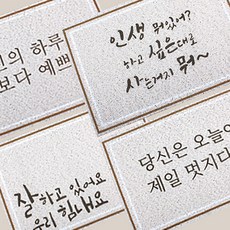 의 하루
보다 예쁘
인생 뭐있어?
하고 싶은대로
사는거지 뭐~
잘하고 있어요
우리 힘내요
당신은 오늘이
제일 멋지다